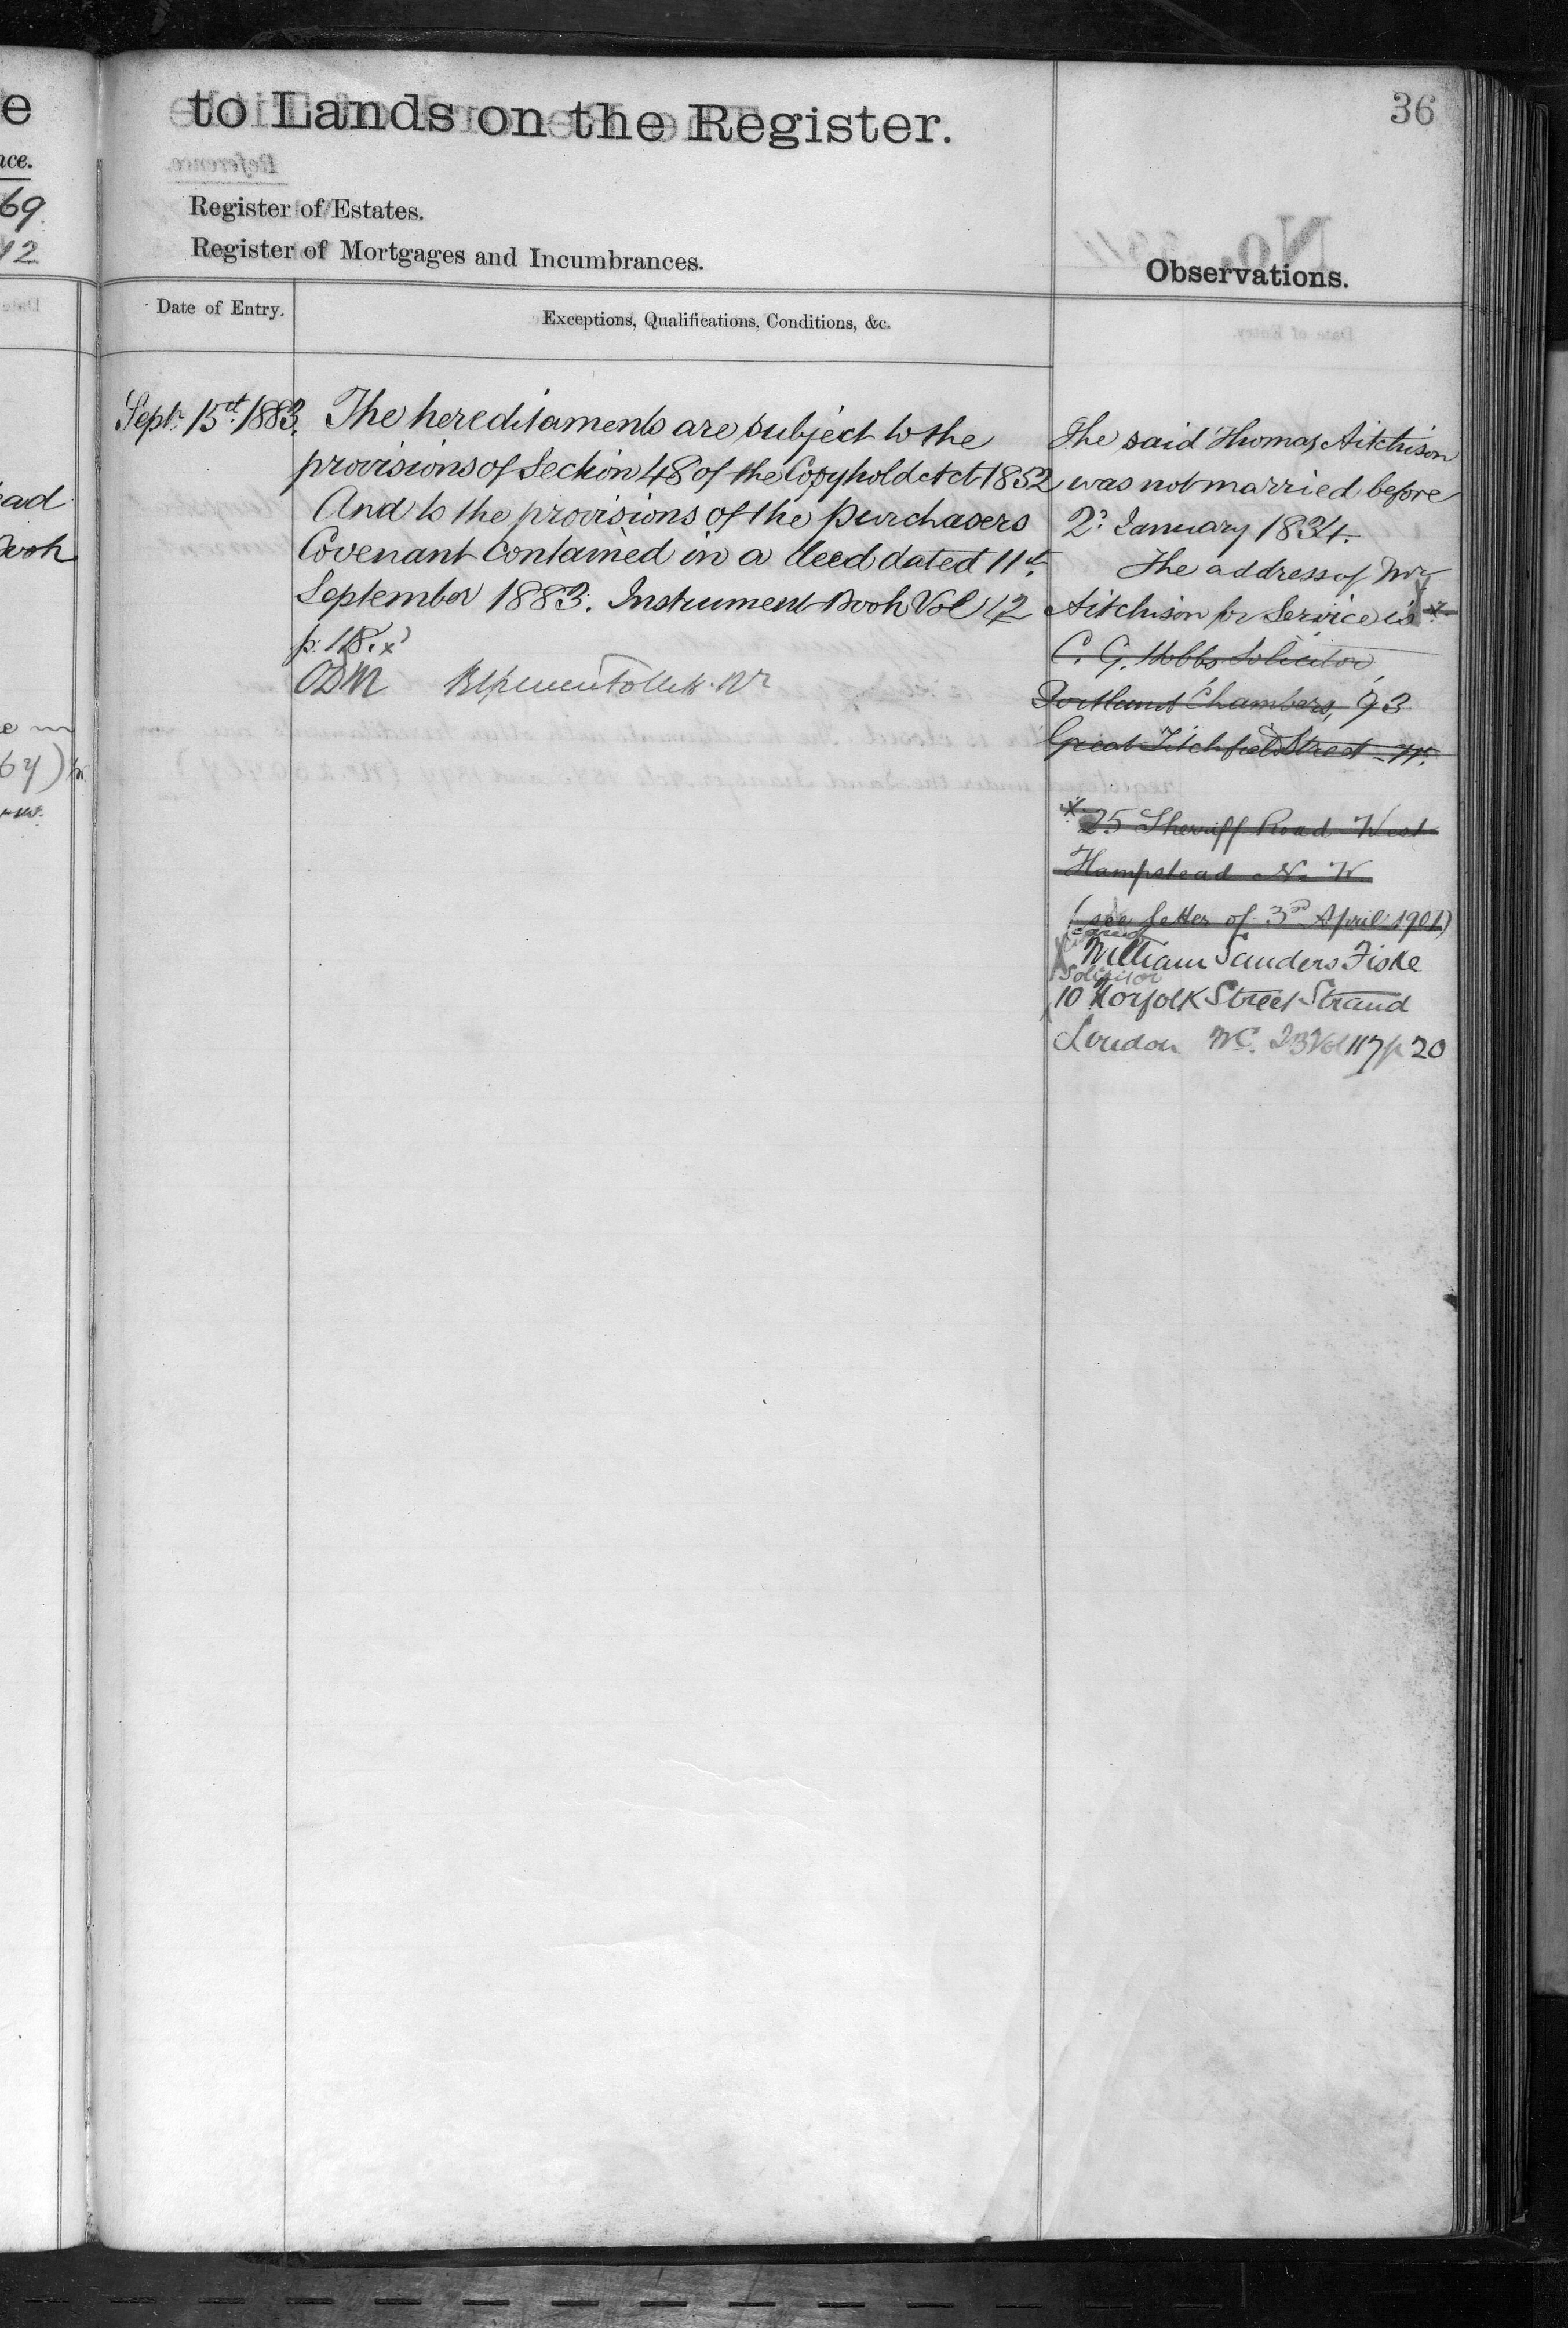 36
to Lands on the Register.
Register of Estates.
Register of Mortgages and Incumbrances.
Observations.
Date of Entry.
Exceptions, Qualifications, Conditions, &c.
Sept. 15th. 1883.
The hereditaments are subject to the
provisions of Section 48 of the Copyhold Act 1852
And to the provisions of the purchasers
Covenant contained in a deed dated 11th
September 1883. Instrument Book Vol 12
p. 118. x
ODM
The said Thomas Aitchison
was not married before
2d January 1834.
The address of Mr
Aitchison for Service is x
C. G. Hobbs Solicitor
Portland Chambers, 93
Great Titchfield Street W.
x 25 Sherriff Road West
Hampstead N. W.
(see letter of 3rd April 1901)
care of
William Sanders Fiske
Solicitor
10 Norfolk Street Strand
London WC. Vol 117 p 20